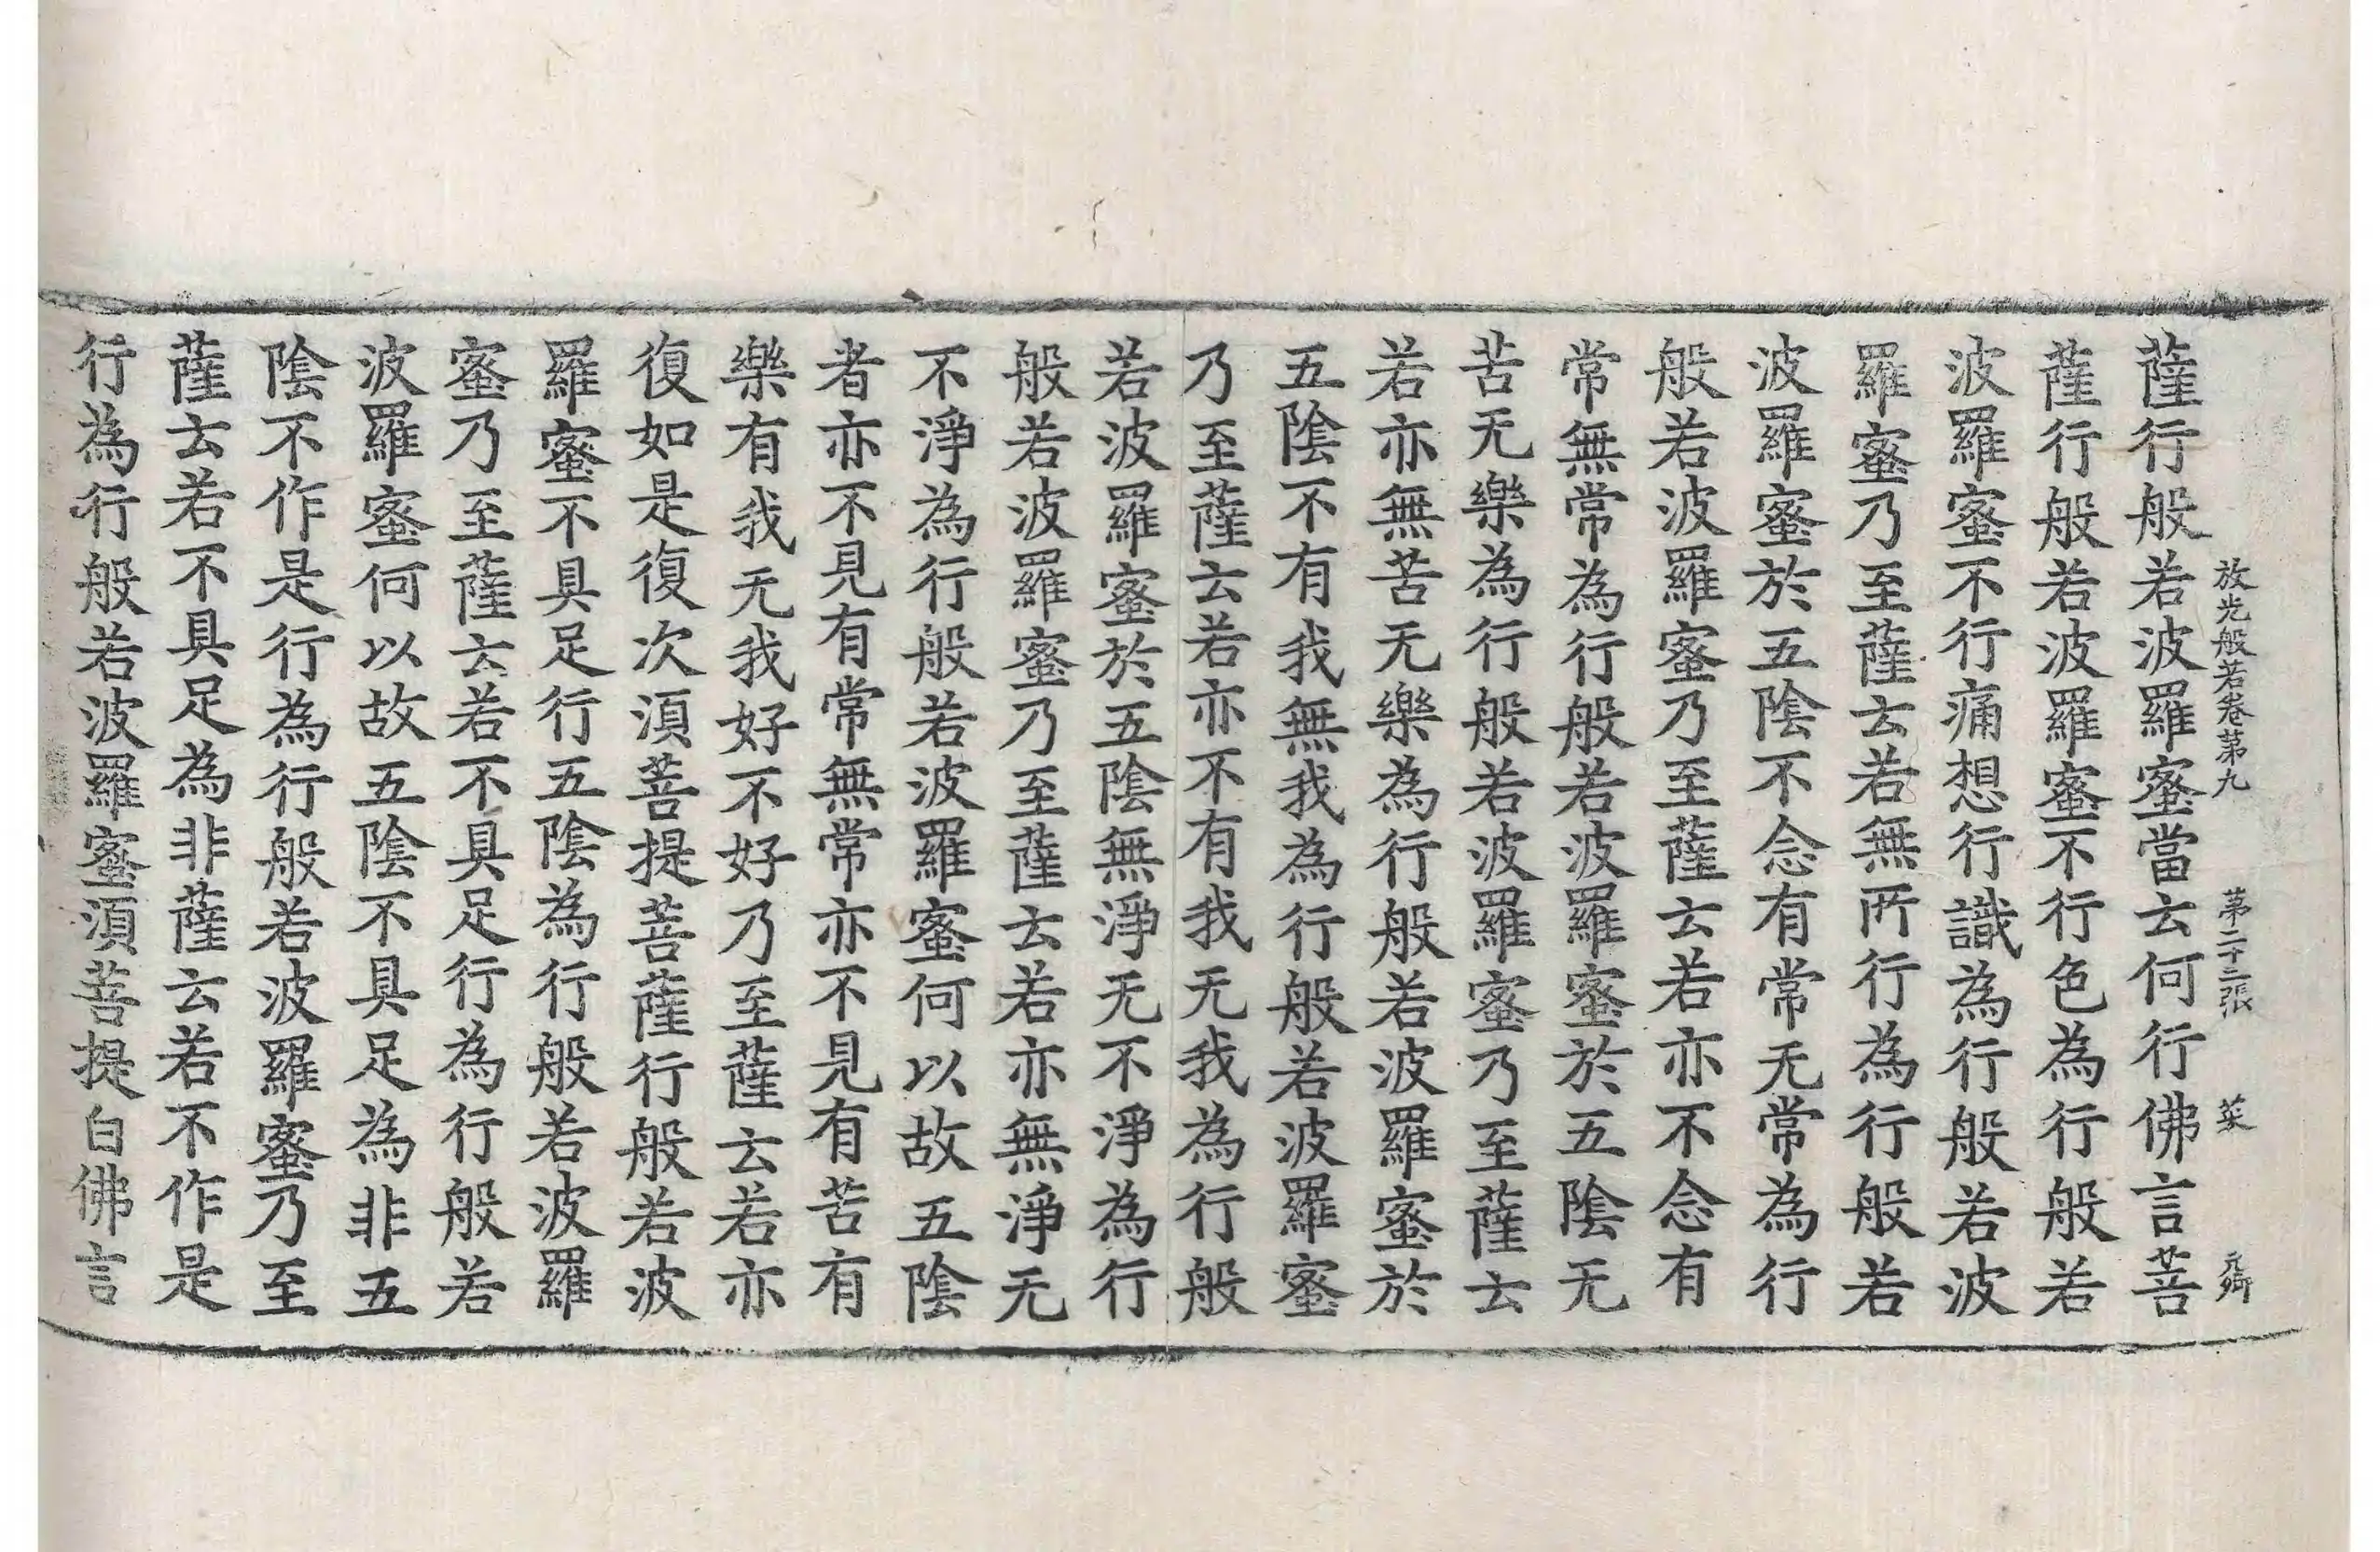 放光般若卷苐九 苐二十二張 菜 元卿
薩行般若波羅蜜當云何行佛言菩
薩行般若波羅蜜不行色為行般若
波羅蜜不行痛想行識為行般若波
羅蜜乃至薩云若無所行為行般若
波羅蜜於五陰不念有常无常為行
般若波羅蜜乃至薩云若亦不念有
常無常為行般若波羅蜜於五陰无
苦无樂為行般若波羅蜜乃至薩云
若亦無苦无樂為行般若波羅蜜於
五陰不有我無我為行般若波羅蜜
乃至薩云若亦不有我无我為行般
若波羅蜜於五陰無淨无不淨為行
般若波羅蜜乃至薩云若亦無淨无
不淨為行般若波羅蜜何以故五陰
者亦不見有常無常亦不見有苦有
樂有我无我好不好乃至薩云若亦
復如是復次湏菩提菩薩行般若波
羅蜜不具足行五陰為行般若波羅
蜜乃至薩云若不具足行為行般若
波羅蜜何以故五陰不具足為非五
陰不作是行為行般若波羅蜜乃至
薩云若不具足為非薩云若不作是
行為行般若波羅蜜湏菩提白佛言